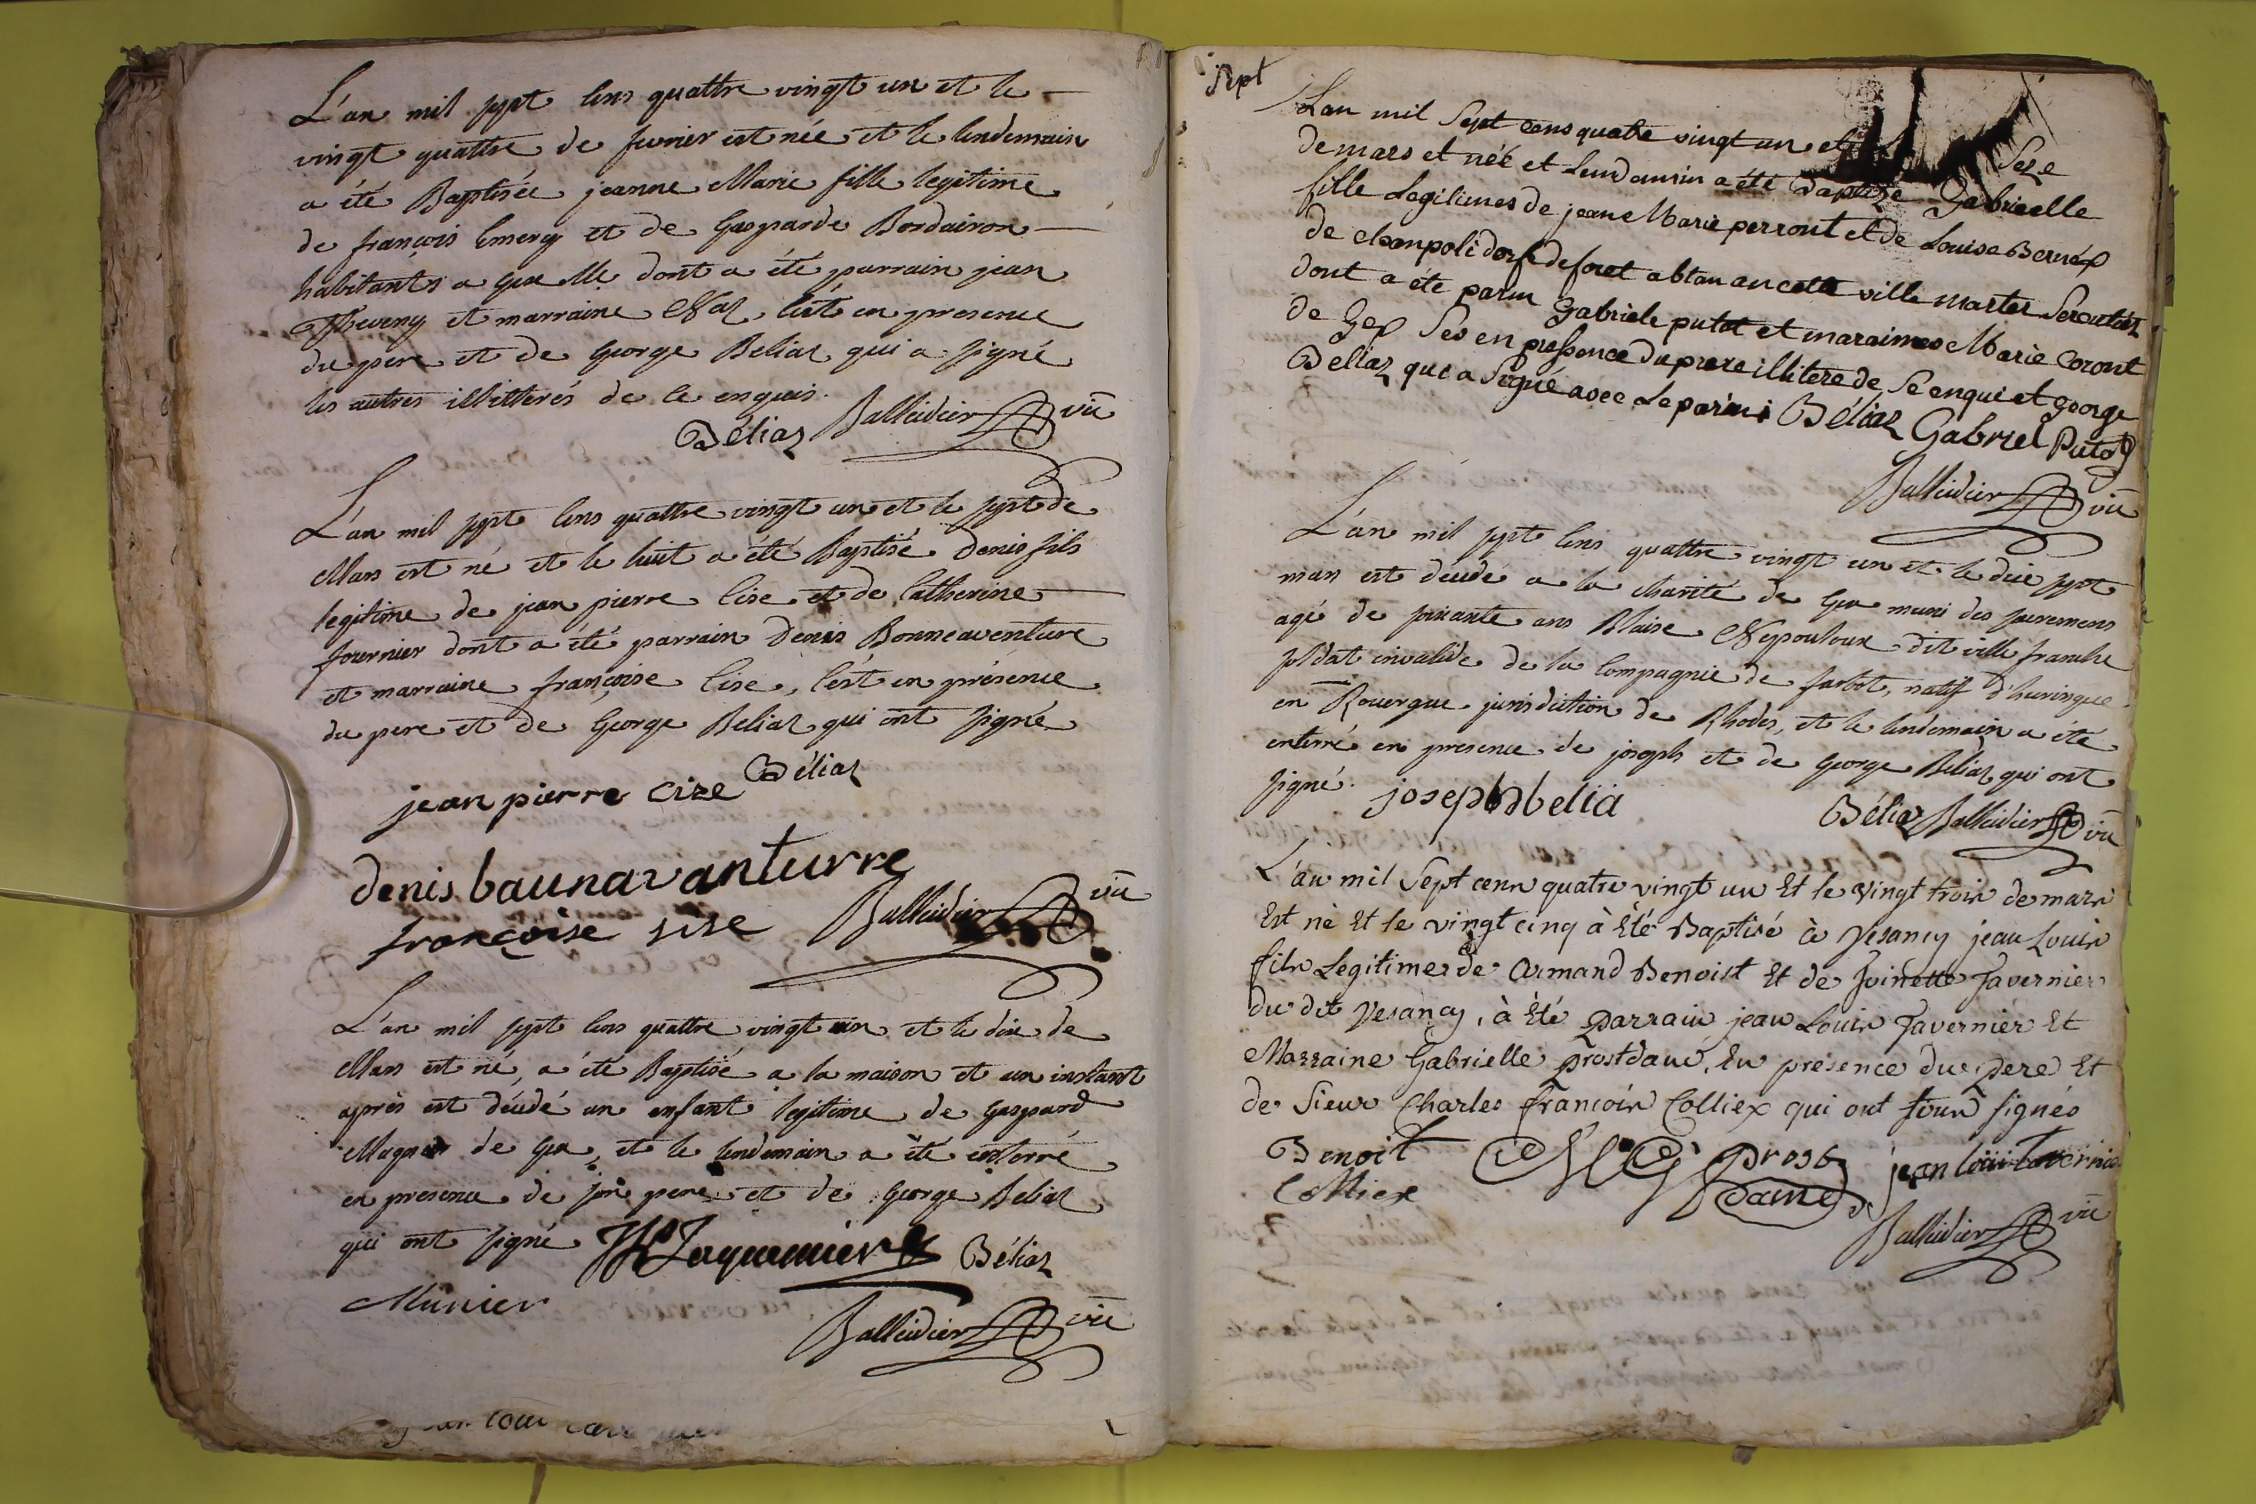 L'an mil sept cens quattre vingt un et le
vingt quattre de fevrier est née et le lendemain
a été Baptisée jeanne Marie fille legitime
de françois Emery et de Gasparde Bordairon
habitants a Gex dont a été parrain jean
Theveny et marraine c'est en presence
du pere et de George Beliaz qui a signé
les autres illitterés de ce enquis.
Béliaz Balleidier vic
L'an mil sept cens quattre vingt un et le sept de
Mars est né et le huit a été Baptisé Denis fils
legitime de jean pierre Cise et de Catherine
fournier dont a été parrain Denis Bonneaventure
et marraine françoise Cise, c'est en présence
du pere et de George Beliaz qui ont signé
Béliaz
jean pierre cize
denis baunavanturre
françoise sise Balleidier vic
L'an mil sept cens quattre vingt un et le dix de
Mars est né, a été Baptisé a la maison et un instant
après est décédé un enfant legitime de Gaspard
de Gex, et le lendemain a été enterré
en presence de son pere et de George Beliaz
qui ont signé Jaquemier Béliaz
Munier
Balleidier vic
sept
Lan mil Sept cens quatre vingt un et Seze
de mars et née et lendamin a été Baptize Gabrielle
fille Legitimes de jean Marie perront et de Louise Bernex
de chanpoli de foret abtan an cette ville
dont a été parin Gabriele putot et maraines Marie Coront
de Gex Ses en pressence du prere illitere de Se enqui et george
Beliaz qui a Signé avec Le parin Béliaz Gabriel Putod
Balleidier vic
L'an mil sept cens quattre vingt un et le dix sept
mars est decedé a la charité de Gex muni des sacremens
agé de soixante ans Blaise Nepouloux dit ville franche
soldat invalide de la Compagnie de farbot, natif d'huringue
en Rouergue jurisdiction de Rhodes, et le lendemain a été
enterré en presence de joseph et de George Béliaz qui ont
signé. joseph belia Béliaz Balleidier vic
L'an mil Sept cens quatre vingt un Et le vingt trois de mars
Est né Et le vingt cinq à Eté Baptisé à Vesancy jean Louis
fils Legitimes de Armand Benoist Et de Toinette Tavernier
du dit Vesancy, à Eté Parrain jean Louis Tavernier Et
Marraine Gabrielle prostdame, En présence du Pere Et
de Sieur Charles françois Colliex qui ont tous signés
Benoit prost jean loui tavernier
Colliex dame
Balleidier vic